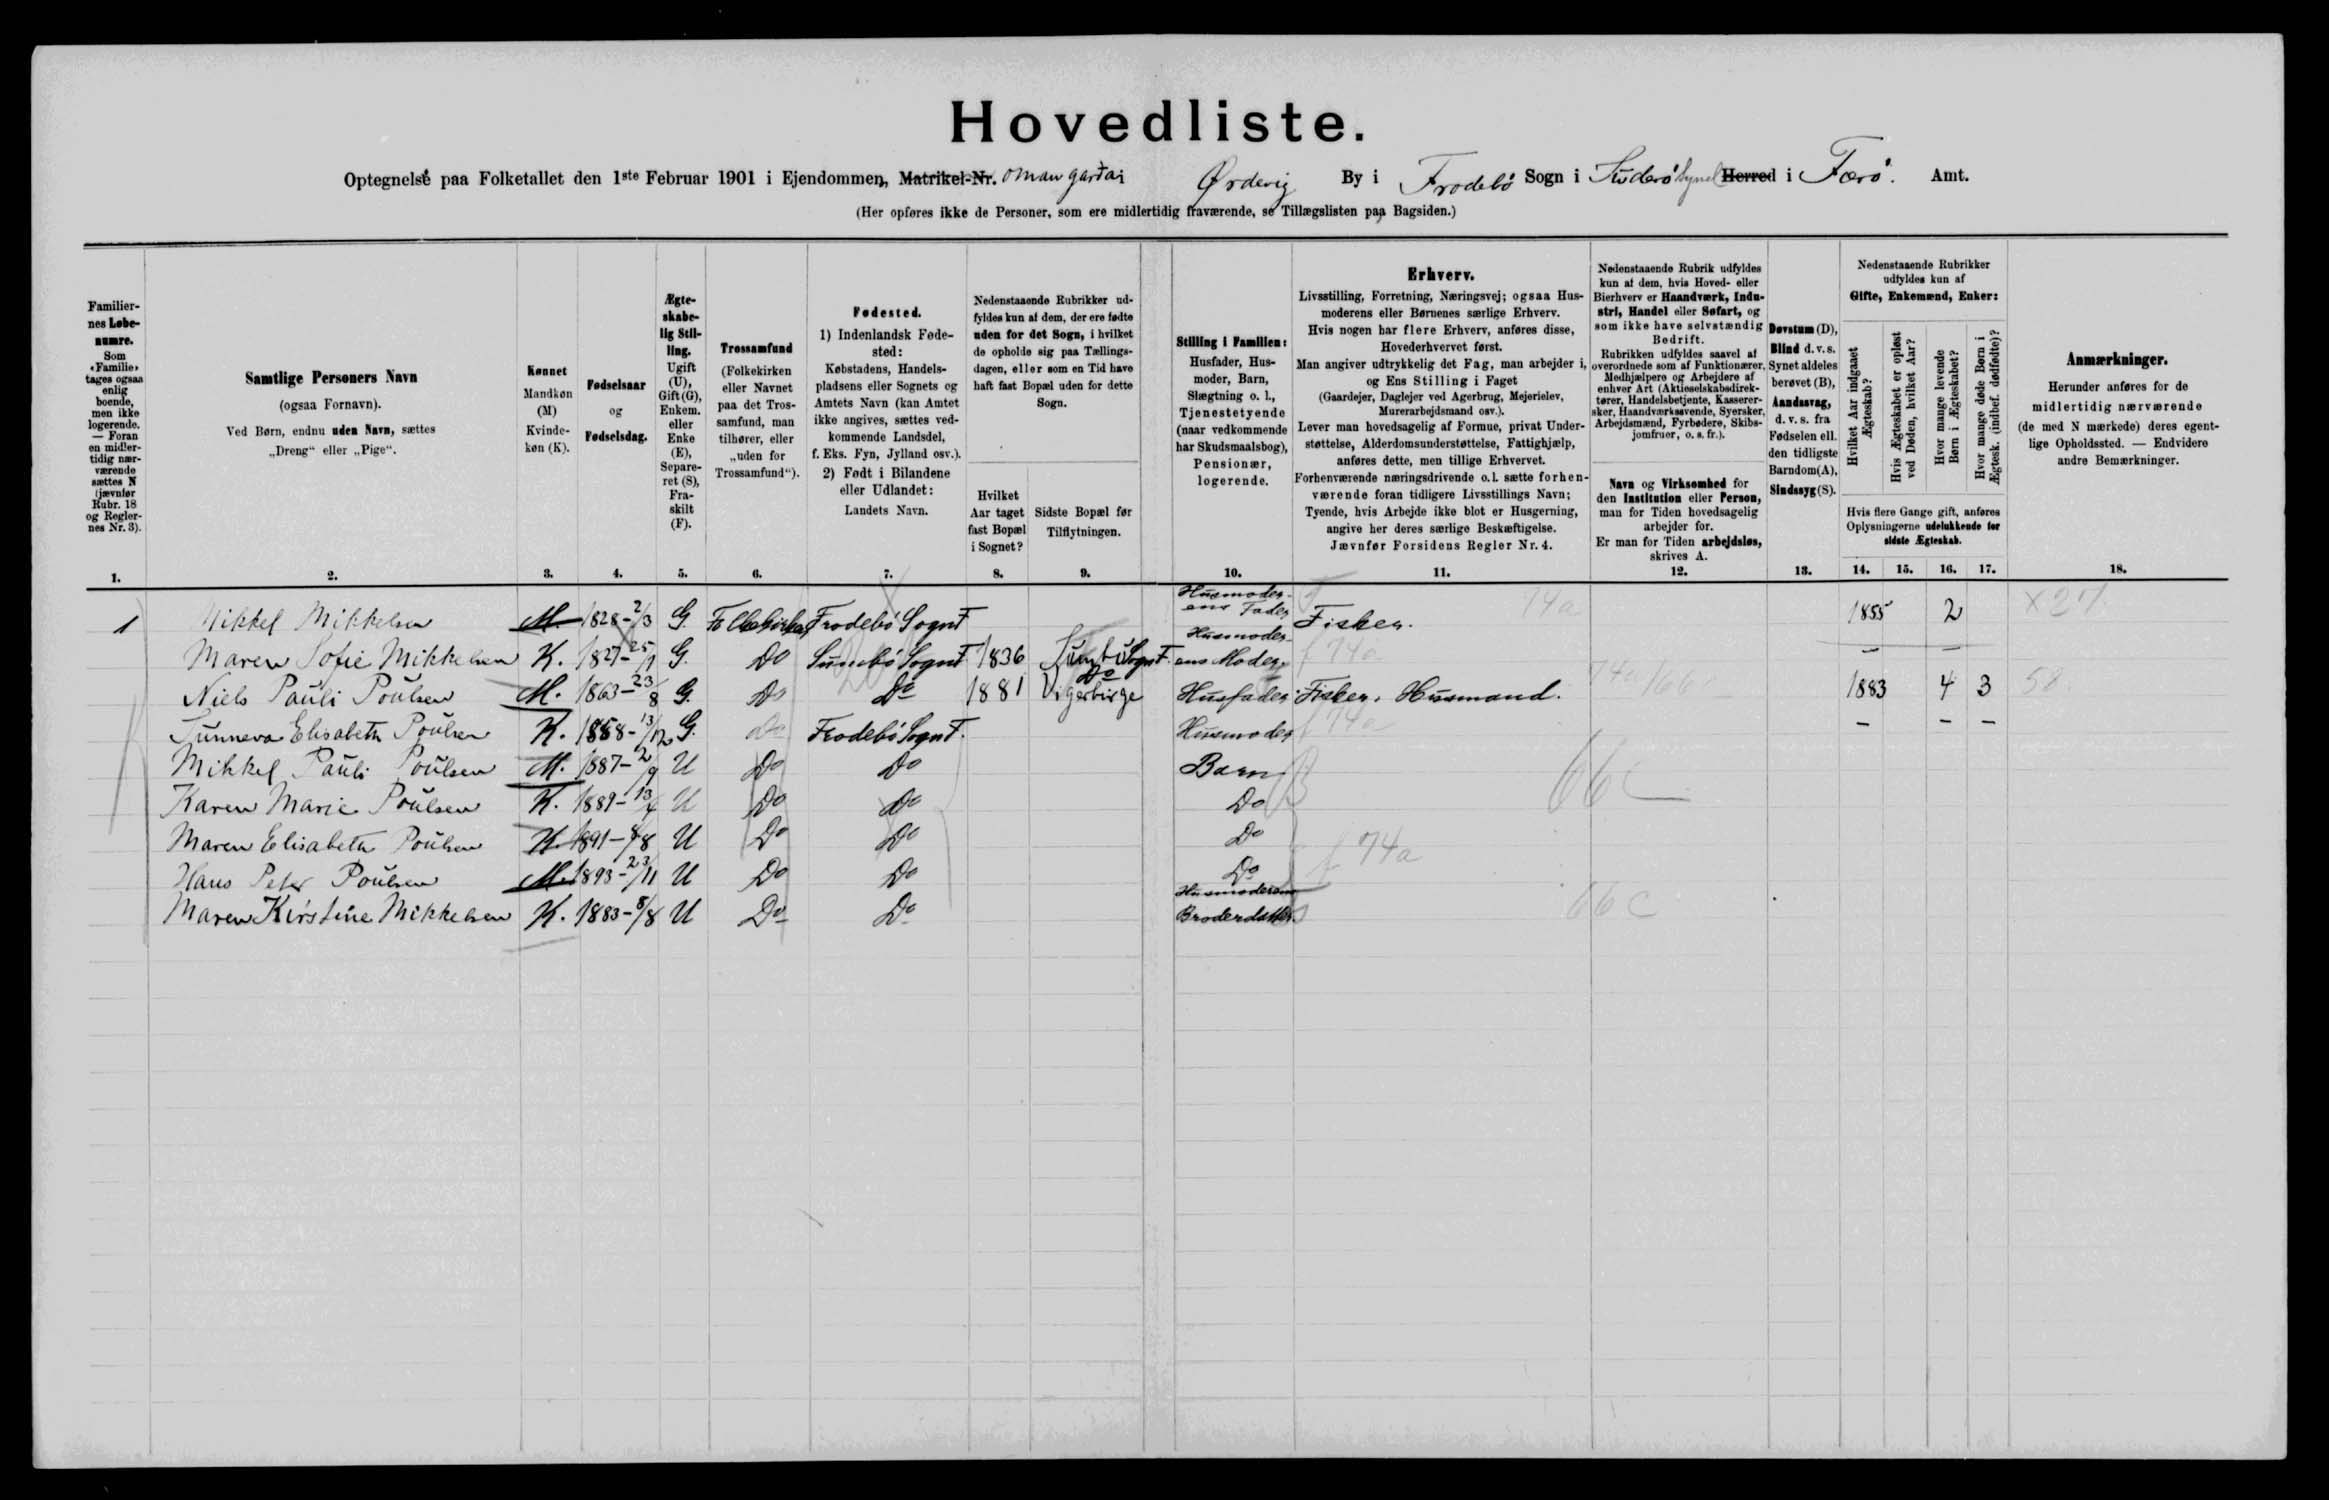 Hovedliste.
Optegnelse paa Folketallet den 1ste Februar 1901 i Ejendommen, Matrikel-Nr. oman gardar Ørdevig By i Frodebö Sogn i Suderö Syssel Herred i Færö. Amt.
(Her opføres ikke de Personer, som ere midlertidig fraværende, se Tillægslisten paa Bagsiden.)
Familier-
nes Løbe-
numre.
Som
«Familie»
tages ogsaa
enlig
boende,
men ikke
logerende.
— Foran
en midler-
tidig nær-
værende
sættes N
(jævnfør
Rubr. 18
og Regler-
nes Nr. 3).
1.
Samtlige Personers Navn
(ogsaa Fornavn).
Ved Børn, endnu uden Navn, sættes
„Dreng“ eller „Pige“.
2.
Kønnet
Mandkøn
(M)
Kvinde-
køn (K).
3.
Fødselsaar
og
Fødselsdag.
4.
Ægte-
skabe-
lig Stil-
ling.
Ugift
(U),
Gift (G),
Enkem.
eller
Enke
(E),
Separe-
ret (S),
Fra-
skilt
(F).
5.
Trossamfund
(Folkekirken
eller Navnet
paa det Tros-
samfund, man
tilhører, eller
„uden for
Trossamfund“).
6.
Fødested.
1) Indenlandsk Føde-
sted:
Købstadens, Handels-
pladsens eller Sognets og
Amtets Navn (kan Amtet
ikke angives, sættes ved-
kommende Landsdel,
f. Eks. Fyn, Jylland osv.).
2) Født i Bilandene
eller Udlandet:
Landets Navn.
7.
Nedenstaaende Rubrikker ud-
fyldes kun af dem, der ere fødte
uden for det Sogn, i hvilket
de opholde sig paa Tællings-
dagen, eller som en Tid have
haft fast Bopæl uden for dette
Sogn.
Hvilket
Aar taget
fast Bopæl
i Sognet?
8.
Sidste Bopæl før
Tilflytningen.
9.
Stilling i Familien:
Husfader, Hus-
moder, Barn,
Slægtning o. l.,
Tjenestetyende
(naar vedkommende
har Skudsmaalsbog),
Pensionær,
logerende.
10.
Erhverv.
Livsstilling, Forretning, Næringsvej; ogsaa Hus-
moderens eller Børnenes særlige Erhverv.
Hvis nogen har flere Erhverv, anføres disse,
Hovederhvervet først.
Man angiver udtrykkelig det Fag, man arbejder i,
og Ens Stilling i Faget
(Gaardejer, Daglejer ved Agerbrug, Mejerielev,
Murerarbejdsmand osv.).
Lever man hovedsagelig af Formue, privat Under-
støttelse, Alderdomsunderstøttelse, Fattighjælp,
anføres dette, men tillige Erhvervet.
Forhenværende næringsdrivende o. l. sætte forhen-
værende foran tidligere Livsstillings Navn;
Tyende, hvis Arbejde ikke blot er Husgerning,
angive her deres særlige Beskæftigelse.
Jævnfør Forsidens Regler Nr. 4.
11.
Nedenstaaende Rubrik udfyldes
kun af dem, hvis Hoved- eller
Bierhverv er Haandværk, Indu-
stri, Handel eller Søfart, og
som ikke have selvstændig
Bedrift.
Rubrikken udfyldes saavel af
overordnede som af Funktionærer,
Medhjælpere og Arbejdere af
enhver Art (Aktieselskabsdirek-
tører, Handelsbetjente, Kasserer-
sker, Haandværkssvende, Syersker,
Arbejdsmænd, Fyrbødere, Skibs-
jomfruer, o. s. fr.).
Navn og Virksomhed for
den Institution eller Person,
man for Tiden hovedsagelig
arbejder for.
Er man for Tiden arbejdsløs,
skrives A.
12.
Døvstum (D),
Blind d. v. s.
Synet aldeles
berøvet (B),
Aandssvag,
d. v. s. fra
Fødselen ell.
den tidligste
Barndom (A),
Sindssyg (S).
13.
Nedenstaaende Rubrikker
udfyldes kun af
Gifte, Enkemænd, Enker:
Hvilket Aar indgaaet
Ægteskab?
Hvis Ægteskabet er opløst
ved Døden, hvilket Aar?
Hvor mange levende
Børn i Ægteskabet?
Hvor mange døde Børn i
Ægtesk. (indbef. dødfødte)?
Hvis flere Gange gift, anføres
Oplysningerne udelukkende for
sidste Ægteskab.
14. 15. 16. 17.
Anmærkninger.
Herunder anføres for de
midlertidig nærværende
(de med N mærkede) deres egent-
lige Opholdssted. — Endvidere
andre Bemærkninger.
18.
1 Mikkel Mikkelsen M. 1828-2/3 G. Folkekirken Frodebö Sogn F Husmoderens Fader Fisker. 74a 1855 2 X27
Maren Sofie Mikkelsen K. 1827-25/1 G. Do Sumbö Sogn F. 1836 Sumbö Sogn F. Husmoderens Moder. f 74a — —
Niels Pauli Poulsen M. 1863-23/8 G. Do Do 1881 Do Vigerbirge Husfader Fisker. Husmand. 74a/66c 1883 4 3 58
Sunneva Elisabeth Poulsen K. 1858-13/12 G. do Frodebö Sogn F. Husmoder f 74a — — —
Mikkel Pauli Poulsen M. 1887-2/9 U Do Do Barn
Karen Marie Poulsen K. 1889-13/4 U Do Do Do 66c
Maren Elisabeth Poulsen K. 1891-4/8 U Do Do Do
Hans Peter Poulsen M. 1893-23/11 U Do Do Do f 74a
Maren Kirstine Mikkelsen K. 1883-8/8 U Do Do Husmoderens Broderdatter. 66c